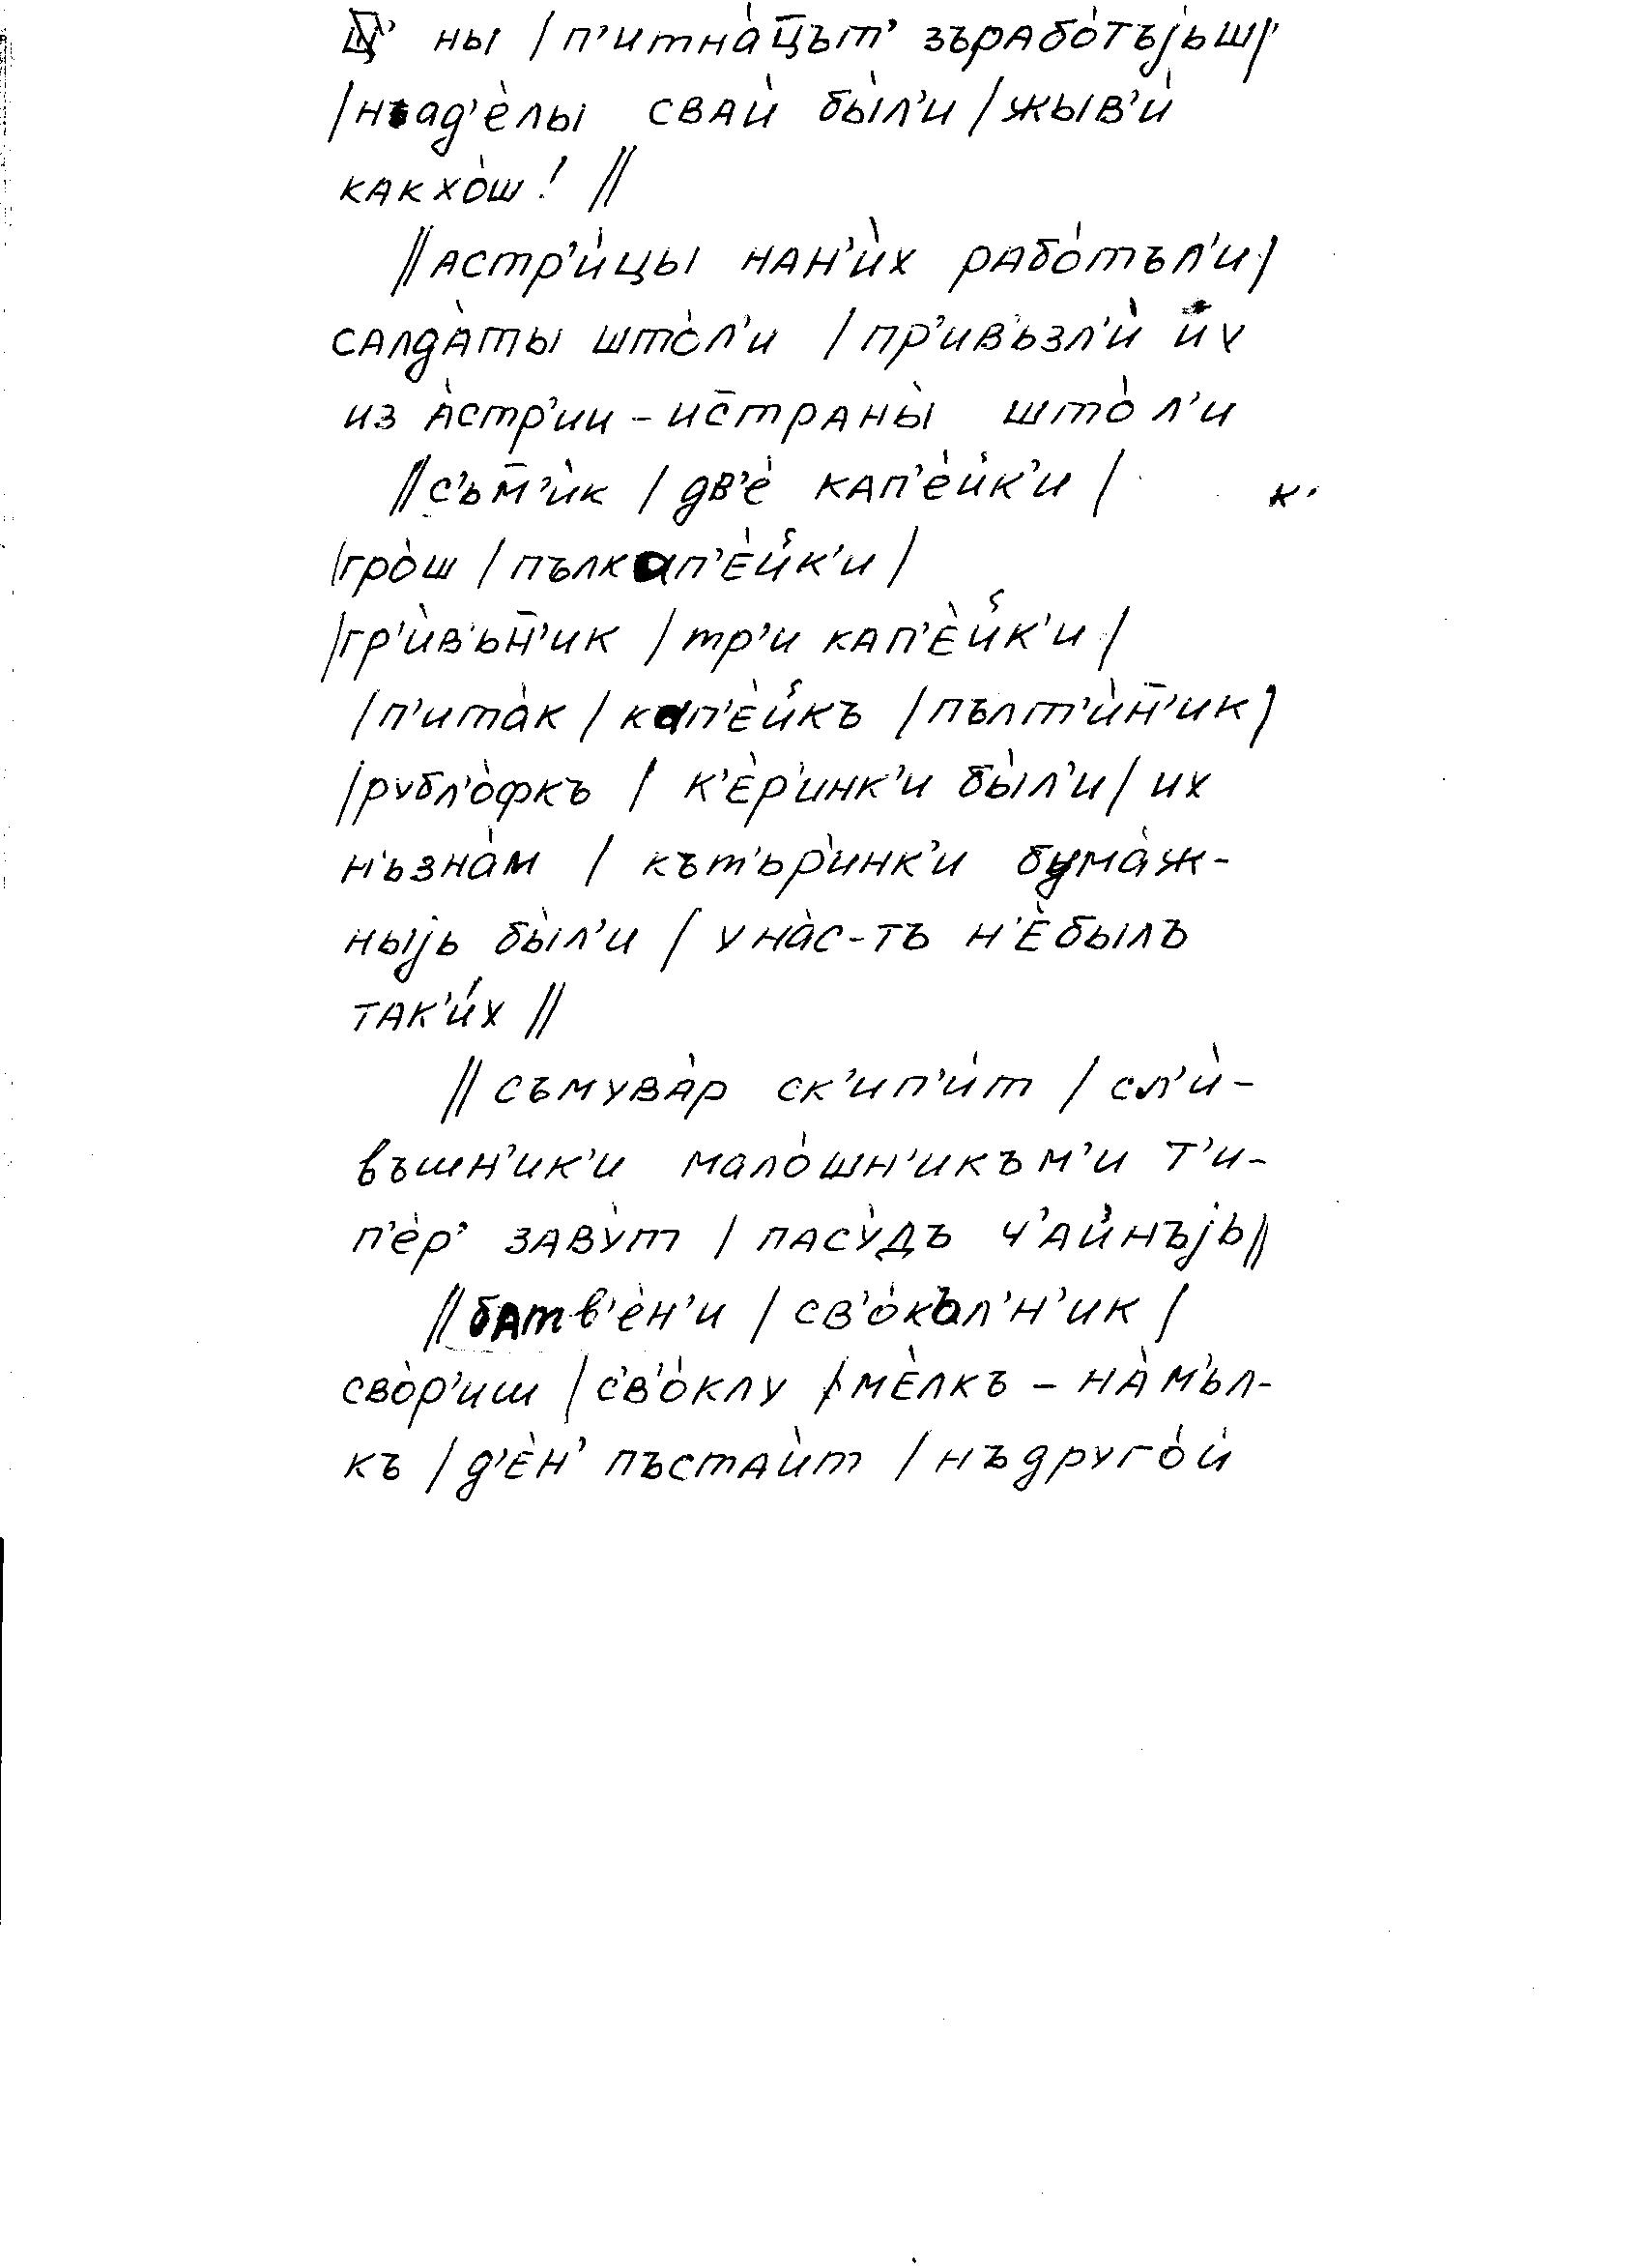 ны / п'итна̀ц̅ът' зърабо́тъјьш /
/ надѐлы сваѝ бы̀л'и / жыв'ѝ
какхо̀ш! //
// астр'ѝцы нан'ѝх рабо́тъл'и /
салда̀ты што̀л'и / пр'ив'ьзл'ѝ их
из а̀стр'ии – ис̅траны̀ што̀л'и
// с'ьм̅'ѝк / дв'ѐ кап'ѐйк'и / к'
/ гро̀ш / пълкап'ѐйк'и /
/ гр'ѝв'ьн̅'ик / тр'и кап'ѐйк'и /
/ п'ита̀к / кап'ѐйкъ / пълт'ѝн̅'ик /
/ рубл'о̀фкъ / к'ѐр'инк'и бы̀л'и / их
н'ьзна̀м / кът'ьр'ѝнк'и бума̀ж-
ныјь бы̀л'и / уна̀с-тъ н'ѐбылъ
так'и́х //
// съмува̀р ск'ип'ѝт / сл'ѝ-
въшн'ик'и мало̀шн'икъм'и т'и-
п'ѐр' заву̀т / пасу̀дъ ч'а́йнъјь //
// батв'ѐн'и / св'о́къл'н'ик /
сво̀р'иш / с'в'о́клу / мѐлкъ – на̀м'ьл-
къ / д'ѐн' пъстаѝт / нъдруго̀й